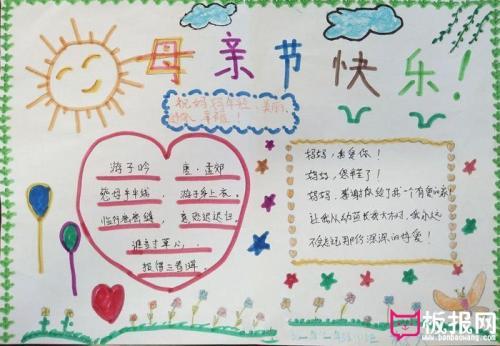 母亲节快乐!
祝妈妈年轻、美丽、
幸福!
游子吟 唐·孟郊
慈母手中线, 游子身上衣.
临行密密缝, 意恐迟迟归.
谁言寸草心,
报得三春晖.
妈妈, 我爱你!
妈妈, 您辛苦了!
妈妈, 感谢你给了我一个有爱的家!
让我从幼苗长成大树, 我永远
不会忘记那份深深的母爱!
板报网
www.banbaowang.com